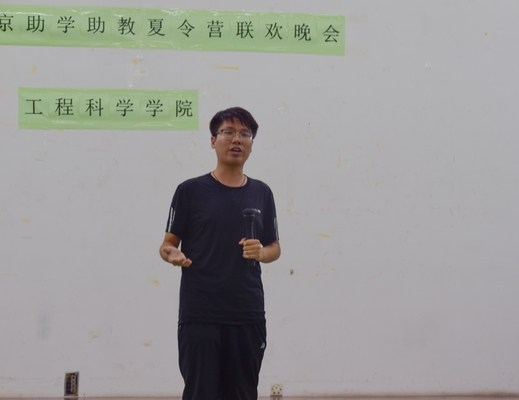 京助学助教夏令营联欢晚会
工程科学学院